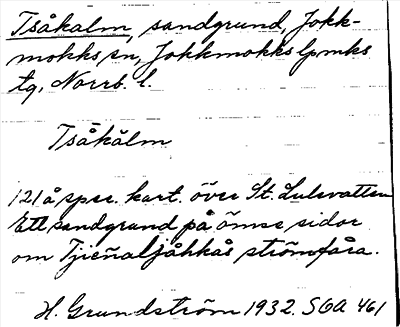 Tsåkalm, sandgrund, Jokk-
mokks sn, Jokkmokks lpmks
tg, Norrb. l.
Tsåkålm
121 å spec. kart. över St. Lulevatten
Ett sandgrund på ömse sidor
om Tjieñaljåhkås strömfåra.
H. Grundström 1932. SOA 461